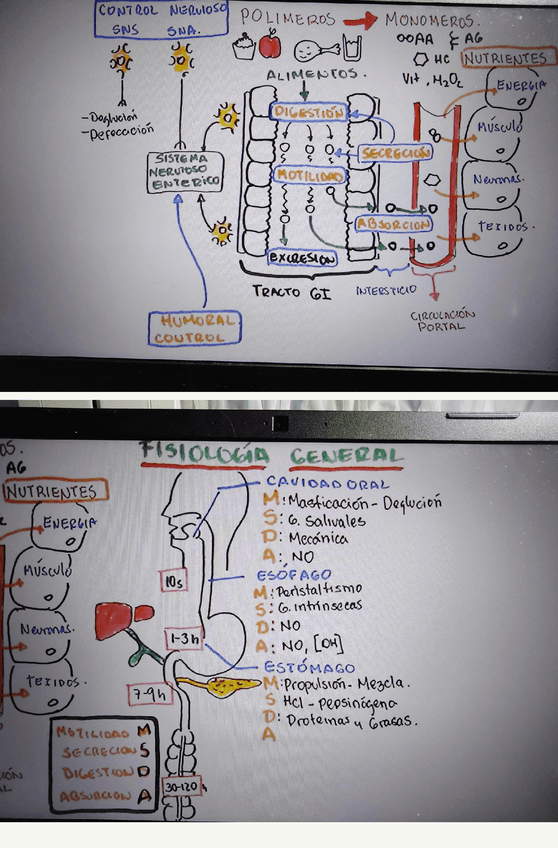 CONTROL NERVIOSO
SNS SNA.
-Deglución
-Defecación
SISTEMA
NERVIOSO
ENTERICO
HUMORAL
CONTROL
POLIMEROS → MONOMEROS.
AA { AG
HC
Vit, H2O2
ALIMENTOS.
DIGESTIÓN
SECRECIÓN
MOTILIDAD
ABSORCION
EXCRESIÓN
TRACTO GI
INTERSTICIO
CIRCULACIÓN
PORTAL
NUTRIENTES
ENERGIA
MÚSCULO
Neuronas.
TEJIDOS.
OS.
AG
NUTRIENTES
ENERGIA
MÚSCULO
Neuronas.
TEJIDOS.
IÓN
AL
FISIOLOGÍA GENERAL
CAVIDAD ORAL
M: Masticación - Deglución
S: G. Salivales
D: Mecánica
A: NO
10s
ESÓFAGO
M: Peristaltismo
S: G. intrínsecas
D: NO
A: NO, [OH]
1-3h
ESTÓMAGO
M: Propulsión - Mezcla.
S HCl - Pepsinógeno
D: Proteinas y Grasas.
A
7-9h
30-120h
MOTILIDAD M
SECRECION S
DIGESTION D
ABSORCION A